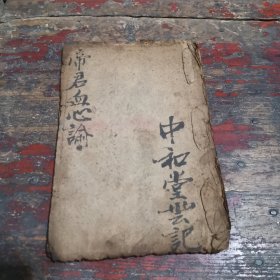 中和堂芸記
帝君血心論